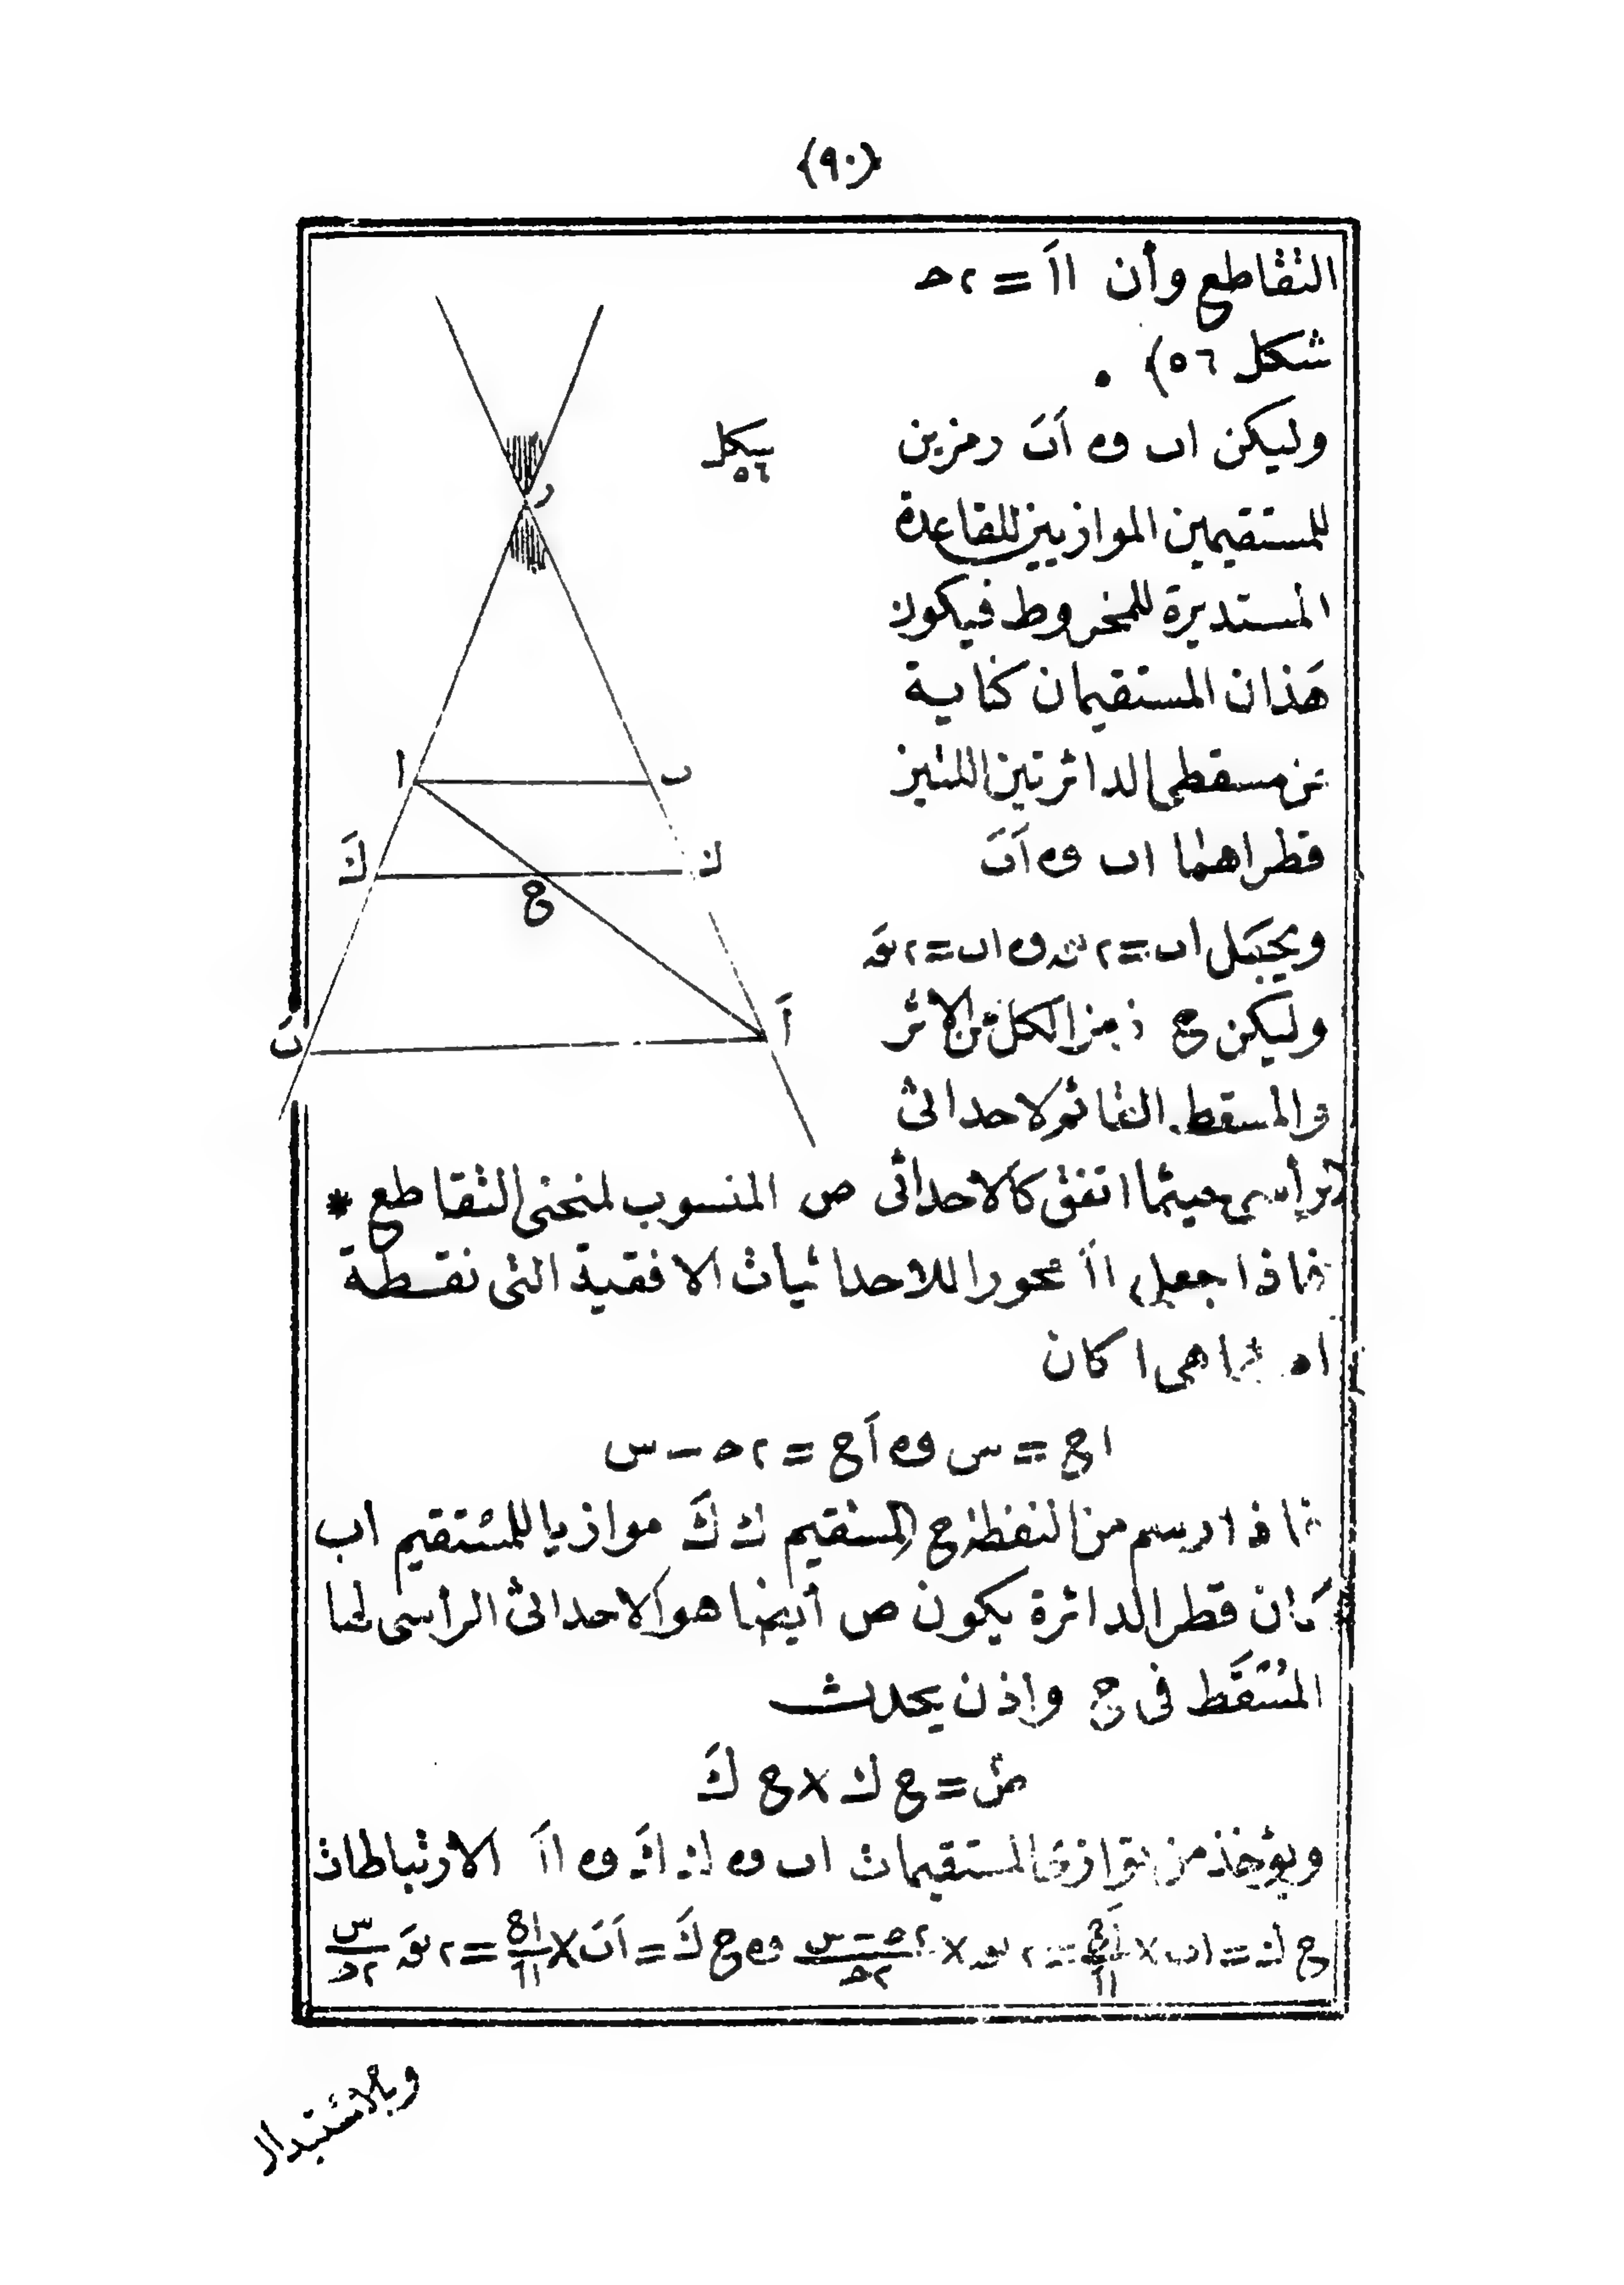 (٩٠)
التقاطع وأن اأَ = ٢ﻫ
شكل ٥٦) .
وليكن اب و أَبَ رمزين
شكل ٥٦
للمستقيمين الموازيين للقاعدة
المستديرة للمخروط فيكون
هذان المستقيمان كناية
عن مسقطى الدائرتين اللتين
قطراهما اب و أَبَ
ويجعل اب = ٢ و اب = ٢
وليكن ج رمزا لكل من الاثر
والمسقط القائم لاحداثى
رأسى حيثما اتفق كالاحداثى ص المنسوب لمنحنى التقاطع *
فاذا جعل اأَ محورا للاحداثيات الافقية التى نقطة
هى ا كان
اج = س و أَج = ٢ﻫ − س
فاذا رسم من النقطة ج المستقيم ك كَ موازيا للمستقيم اب
كان قطر الدائرة يكون ص أيضا هو الاحداثى الرأسى لها
المسقط فى ج واذن يحدث
صَ = ج ك × ج كَ
ويؤخذ من توازى المستقيمات اب و ك كَ و اأَ الارتباطات
ج ك = اب × أَج/اأَ = ٢ × ٢ﻫ − س/٢ﻫ و ج كَ = أَبَ × اج/اأَ = ٢ س/٢ﻫ
وبالاستبدال
ر
ا
ب
كَ
ك
ج
أَ
بَ